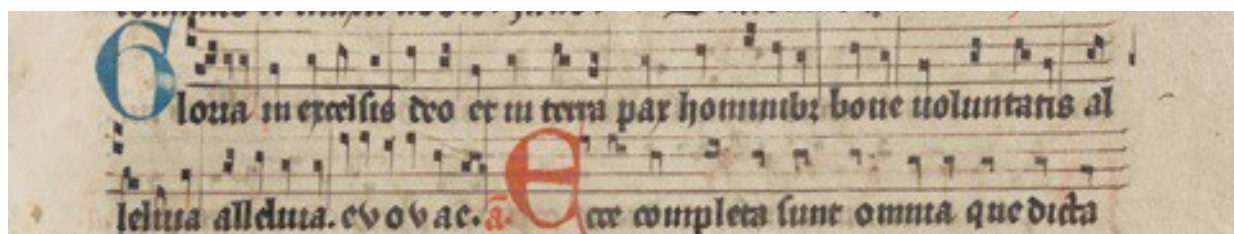 Gloria in excelsis deo et in terra pax hominibꝫ bone uoluntatis al
leluia alleluia. evovae. a᷃. Ecce completa sunt omnia que dicta